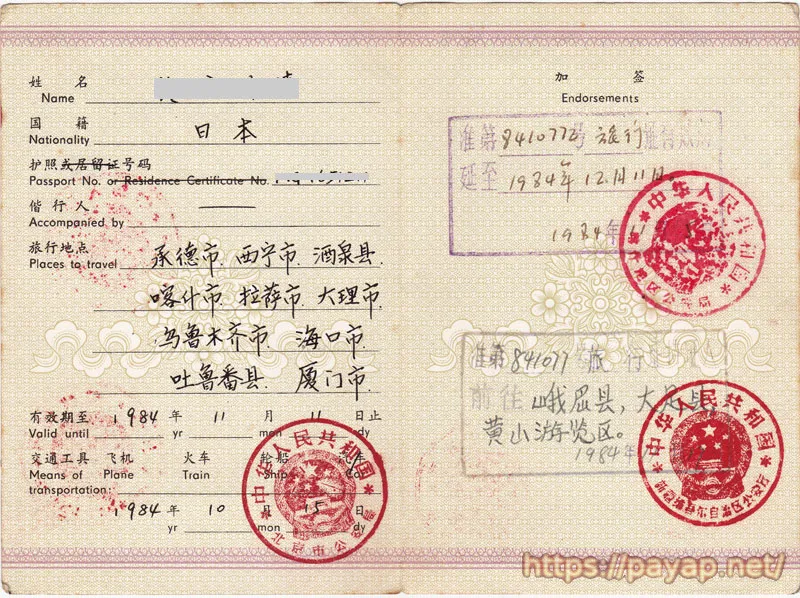 姓 名
Name
国 籍 日本
Nationality
护照或居留证号码
Passport No. or Residence Certificate No.
偕行人
Accompanied by
旅行地点
Places to travel 承德市 西宁市 酒泉县
喀什市 拉萨市 大理市
乌鲁木齐市 海口市
吐鲁番县 厦门市
有效期至 1984 年 11 月 11 日止
Valid until yr mon dy
交通工具 飞机 火车 轮船 汽车
Means of Plane Train Ship
transportation:
1984 年 10 月 15 日
yr mon dy
中华人民共和国
北京市公安局
加 签
Endorsements
准第841077号 旅行
延至 1984年12月11日。
1984年11
中华人民共和国
准第841077 旅行
前往 峨眉县,大足县,
黄山游览区。
1984年
中华人民共和国
自治区公安厅
https://payap.net/